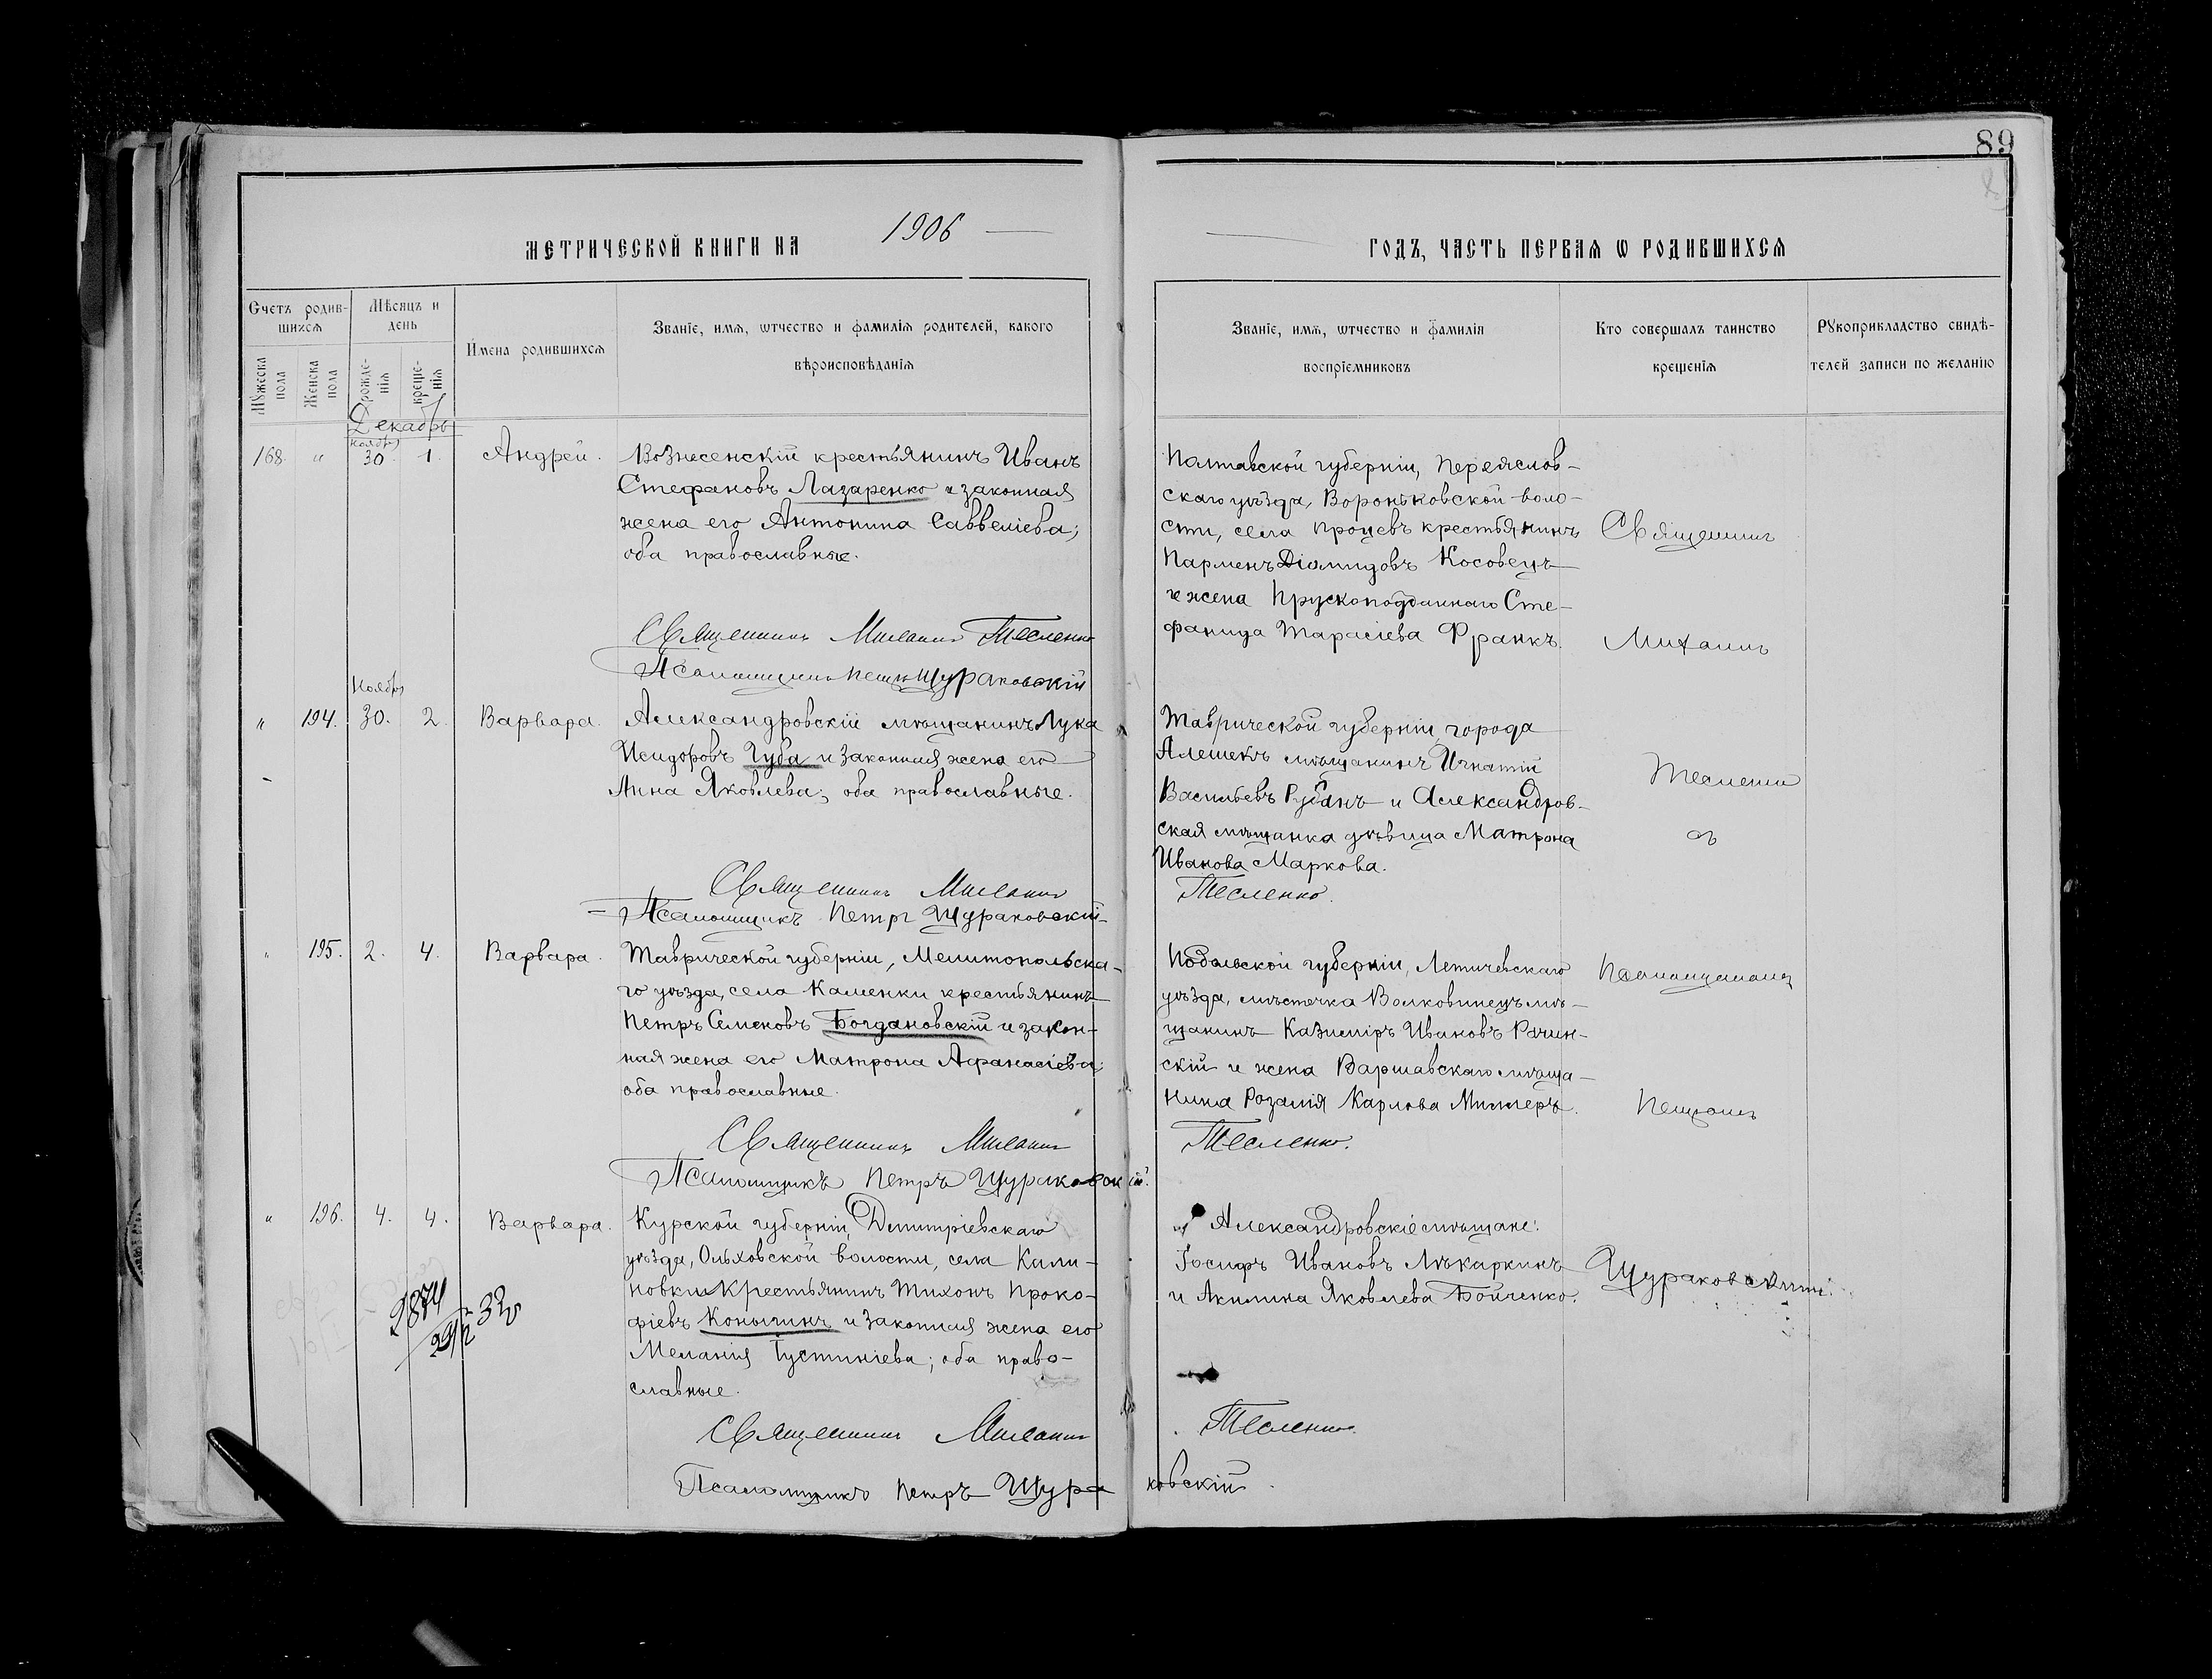 89
МЕТРИЧЕСКОЙ КНИГИ НА 1906 ГОДЪ, ЧАСТЬ ПЕРВАѦ Ѡ РОДИВШИХСѦ
Счетъ родив-
шихсѧ
Мꙋжеска
пола
Женска
пола
Мѣсяцъ и
день
рожде-
нїѧ
креще-
нїѧ
Имена родившихсѧ
Званїе, имѧ, ѡтчество и фамилїѧ родителей, какого
вѣроисповѣданїѧ
Званїе, имѧ, ѡтчество и фамилїѧ
воспрїемниковъ
Кто совершалъ таинство
крещенїѧ
Рꙋкоприкладство свидѣ-
телей записи по желанїю
Декабрь
Ноябр
168. " 30. 1. Андрей.
Вознесенскій крестьянинъ Иванъ
Стефановъ Лазаренко и законная
жена его Антонина Саввеліева;
оба православные.
Священникъ Михаилъ Тесленко
Псаломщикъ Петръ Щураковскій
Полтавской губерніи, Переяслов-
скаго уѣзда, Вороньковской воло-
сти, села Процевъ крестьянинъ
Парменъ Діомидовъ Косовецъ
и жена Прускоподданнаго Сте-
фанида Тарасіева Франкъ.
Священник
Михаилъ
Ноябр
" 194. 30. 2. Варвара.
Александровскій мѣщанинъ Лука
Исидоровъ Губа и законная жена его
Анна Яковлева; оба православные.
Священникъ Михаилъ Тесленко.
Псаломщикъ Петръ Щураковскій
Таврической губерніи, города
Алешекъ мѣщанинъ Игнатій
Васильевъ Рубанъ и Александров-
ская мѣщанка дѣвица Матрона
Иванова Маркова.
Тесленко
съ
" 195. 2. 4. Варвара.
Таврической губерніи, Мелитопольска-
го уѣзда, села Каменки крестьянинъ
Петръ Семеновъ Богдановскій и закон-
ная жена его Матрона Афанасіева;
оба православные.
Священникъ Михаилъ Тесленко.
Псаломщикъ Петръ Щураковскій.
Подольской губерніи, Летичевскаго
уѣзда, мѣстечка Волковинецъ мѣ-
щанинъ Казиміръ Ивановъ Рачин-
скій и жена Варшавскаго мѣща-
нина Розалія Карлова Миллеръ.
Псаломщикомъ
Петромъ
" 196. 4. 4. Варвара.
Курской губерніи, Дмитріевскаго
уѣзда, Ольховской волости, села Кали-
новки крестьянинъ Тихонъ Проко-
фіевъ Конычинъ и законная жена его
Меланія Іустиніева; оба право-
славные.
Священникъ Михаилъ Тесленко.
Псаломщикъ Петръ Щураковскій.
Александровскіе мѣщане:
Іосифъ Ивановъ Лѣкаркинъ
и Акилина Яковлева Бойченко.
Щураковскимъ.